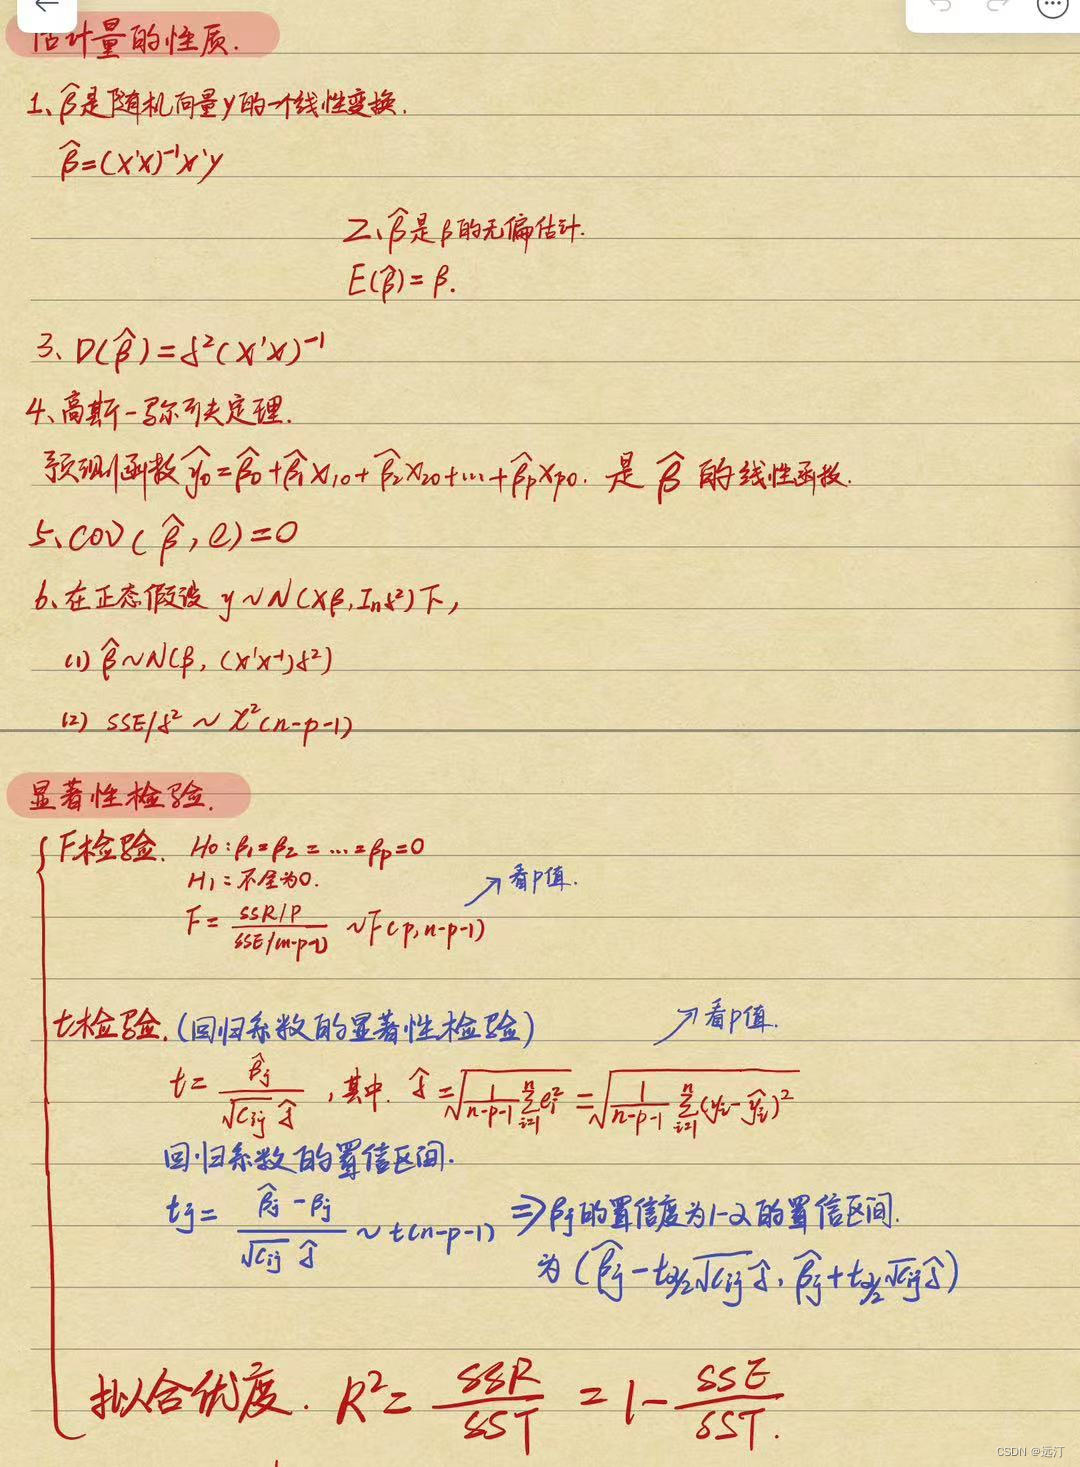 估计量的性质.
1、β̂是随机向量y的一个线性变换.
β̂=(X'X)⁻¹X'y
2、β̂是β的无偏估计.
E(β̂)=β.
3、D(β̂)=δ²(X'X)⁻¹
4、高斯-马尔可夫定理.
预测函数ŷ₀=β̂₀+β̂₁X₁₀+β̂₂X₂₀+…+β̂pXp₀. 是β̂的线性函数.
5、COV(β̂,e)=0
6、在正态假设 y~N(Xβ,Inδ²)下,
(1) β̂~N(β,(X'X⁻¹)δ²)
(2) SSE/δ² ~ χ²(n-p-1)
显著性检验.
F检验. H₀:β₁=β₂=…=βp=0
H₁:不全为0.
看P值.
F= (SSR/P)/(SSE/(n-p-1)) ~F(p,n-p-1)
t检验.(回归系数的显著性检验)
看P值.
t= β̂j/(√cij δ̂) ,其中. δ̂=√(1/(n-p-1) Σⁿᵢ₌₁eᵢ²)=√(1/(n-p-1) Σⁿᵢ₌₁(yᵢ-ŷᵢ)²)
回归系数的置信区间.
tj= (β̂j-βj)/(√cij δ̂) ~t(n-p-1) ⇒βj的置信度为1-α的置信区间.
为(β̂j-tα/2√cij δ̂, β̂j+tα/2√cij δ̂)
拟合优度. R²= SSR/SST = 1- SSE/SST.
CSDN @远汀